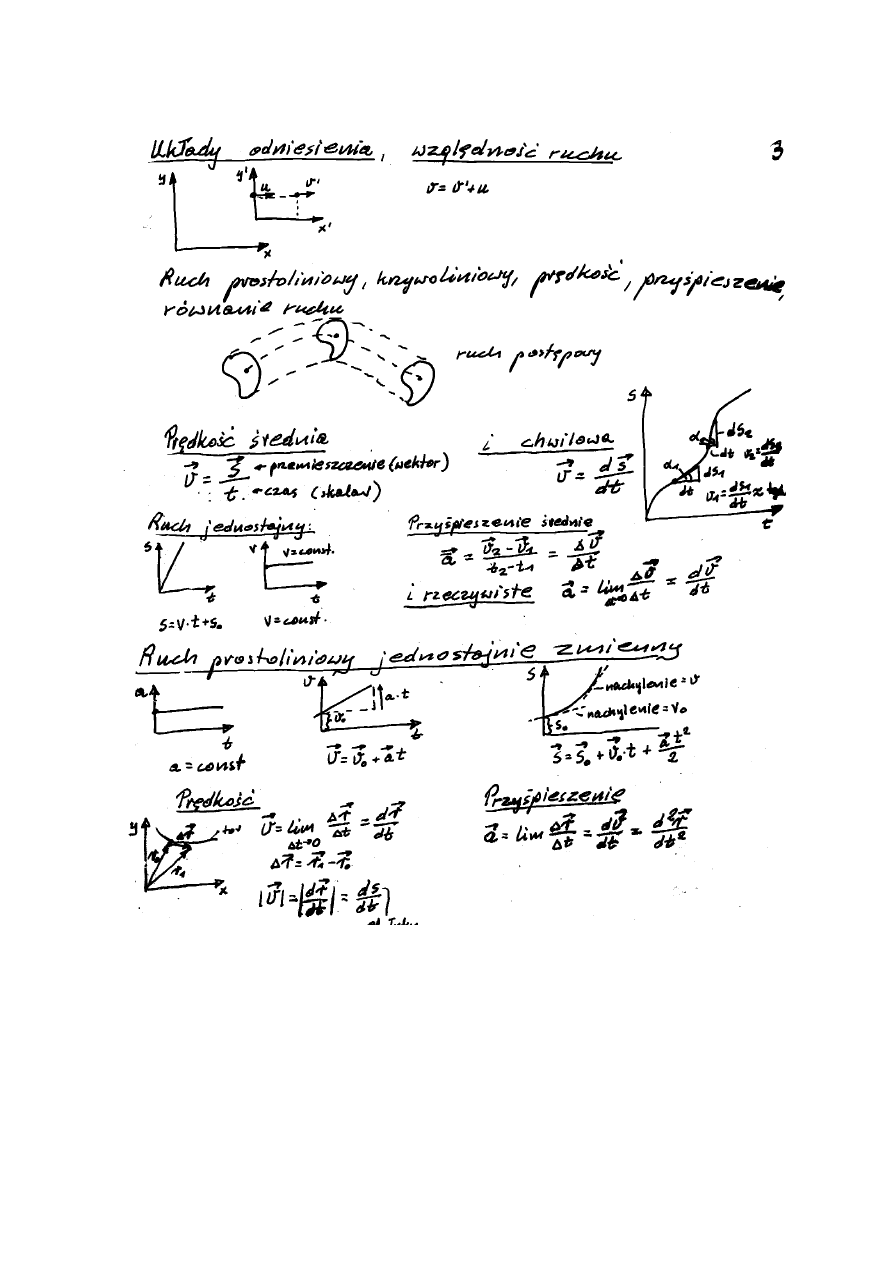 Układy odniesienia, względność ruchu 3
y y' u v' v = v' + u
x' x
Ruch prostoliniowy, krzywoliniowy, prędkość, przyśpieszenie,
równanie ruchu
ruch postępowy
Prędkość średnia i chwilowa
v⃗ = s⃗ / t ← przemieszczenie (wektor) ← czas (skalar)
v⃗ = ds⃗/dt
S α₂ dS₂ dt v₂ = dS₂/dt
α₁ dS₁ dt v₁ = dS₁/dt ~ t
Ruch jednostajny:
S t v v=const. t
S=v·t+S₀ v=const.
Przyśpieszenie średnie
a⃗ = (v⃗₂ - v⃗₁)/(t₂ - t₁) = Δv⃗/Δt
i rzeczywiste a⃗ = lim Δv⃗/Δt = dv⃗/dt
Ruch prostoliniowy jednostajnie zmienny
a t v v₀ a·t t S S₀ nachylenie = v
nachylenie = v₀
a = const v⃗ = v⃗₀ + a⃗t s⃗ = s⃗₀ + v⃗₀·t + a⃗t²/2
Prędkość
y Δr⃗ tor r₀ r₁ x
v⃗ = lim Δt→0 Δr⃗/Δt = dr⃗/dt
Δr⃗ = r⃗₁ - r⃗₀
|v⃗| = |dr⃗/dt| = ds/dt
Przyśpieszenie
a⃗ = lim Δr⃗/Δt = dv⃗/dt = d²r⃗/dt²